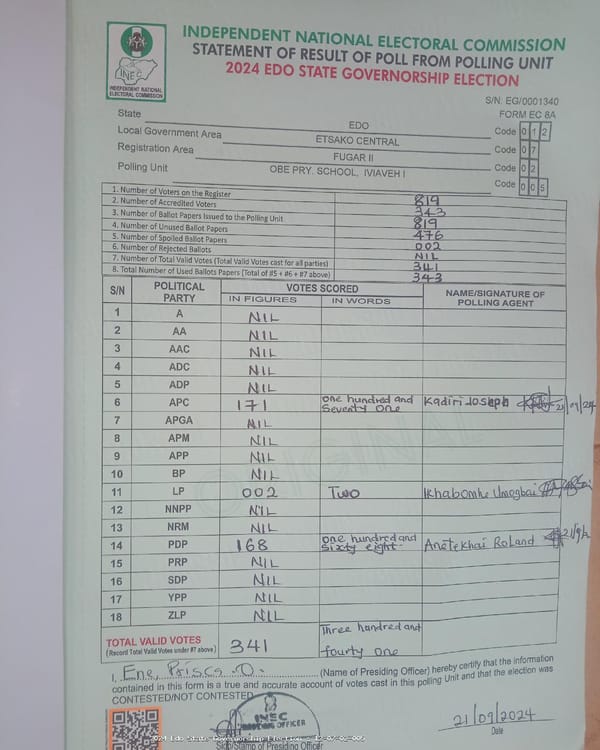 INDEPENDENT NATIONAL ELECTORAL COMMISSION
STATEMENT OF RESULT OF POLL FROM POLLING UNIT
2024 EDO STATE GOVERNORSHIP ELECTION
INEC
INDEPENDENT NATIONAL
ELECTORAL COMMISSION
S/N. EG/0001340
FORM EC 8A
State EDO Code 0 1 2
Local Government Area ETSAKO CENTRAL Code 0 7
Registration Area FUGAR II Code 0 2
Polling Unit OBE PRY. SCHOOL, IVIAVEH I Code 0 0 5
1. Number of Voters on the Register 819
2. Number of Accredited Voters 343
3. Number of Ballot Papers Issued to the Polling Unit 819
4. Number of Unused Ballot Papers 476
5. Number of Spoiled Ballot Papers 002
6. Number of Rejected Ballots NIL
7. Number of Total Valid Votes (Total Valid Votes cast for all parties) 341
8. Total Number of Used Ballots Papers (Total of #5 + #6 + #7 above) 343
S/N POLITICAL PARTY VOTES SCORED NAME/SIGNATURE OF POLLING AGENT
IN FIGURES IN WORDS
1 A NIL
2 AA NIL
3 AAC NIL
4 ADC NIL
5 ADP NIL
6 APC 171 one hundred and seventy one Kadiri Joseph 21/09/24
7 APGA NIL
8 APM NIL
9 APP NIL
10 BP NIL
11 LP 002 Two Ikhabomhe Umogbai
12 NNPP NIL
13 NRM NIL
14 PDP 168 one hundred and sixty eight Anetekhai Roland
15 PRP NIL
16 SDP NIL
17 YPP NIL
18 ZLP NIL
TOTAL VALID VOTES 341 Three hundred and
(Record Total Valid Votes under #7 above) fourty one
I, Ene, Prisca O. (Name of Presiding Officer) hereby certify that the information
contained in this form is a true and accurate account of votes cast in this polling Unit and that the election was
CONTESTED/NOT CONTESTED.
INEC
PRESIDING OFFICER
21/09/2024
Date
2024 Edo State Governorship Election
Sign/Stamp of Presiding Officer